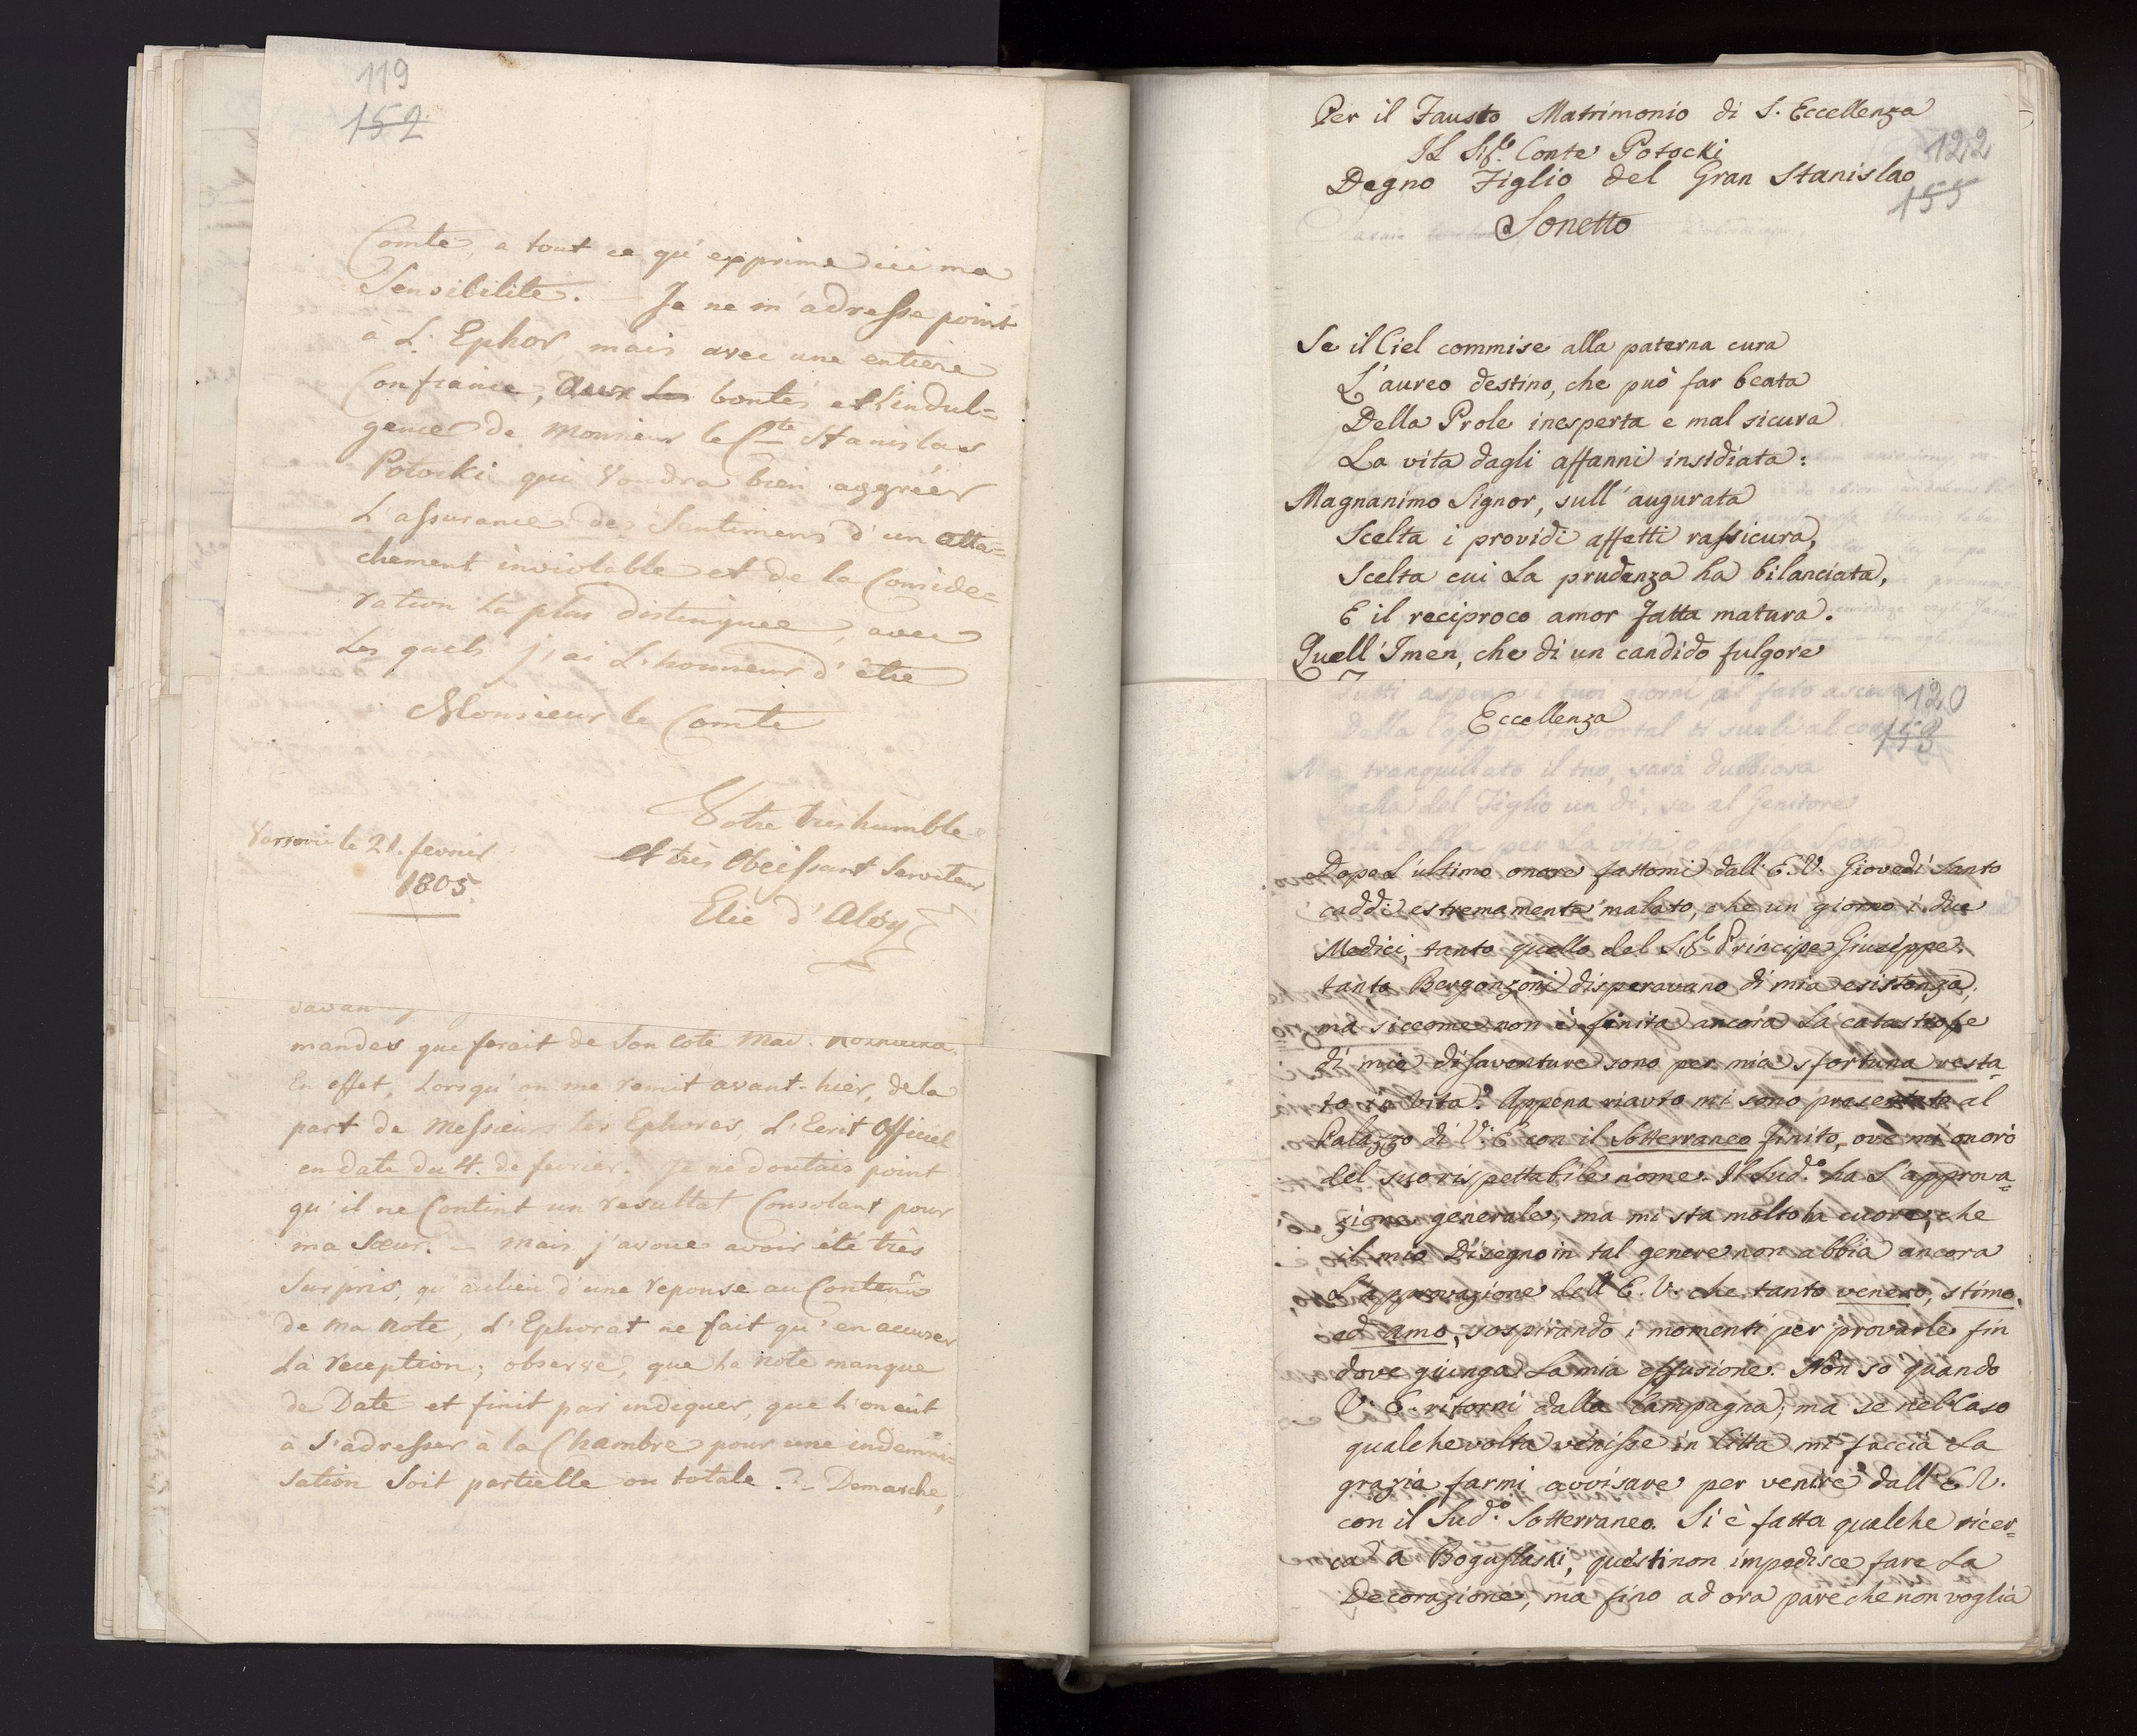 119
152
Comte, a tout ce qu'exprime ici ma
Sensibilite. — Je ne m'adresse point
à L'Ephor, mais avec une entiere
Confiance, aux bontés et l'indul=
gence de Monsieur le Cte Stanislas
Potocki qui Voudra bien aggréer
L'assurance des Sentimens d'un atta=
chement inviolable et de la Conside=
ration La plus distinguée, avec
Les quels j'ai L'honneur d'être
Monsieur le Comte
Votre très humble
et très Obeissant Serviteur
Elie d'Aloÿ
Varsovie le 21. fevrier
1805.
mandes que ferait de Son coté Mad.
En effet, Lorsqu'on me remit avant-hier, de la
part de Messieurs les Ephores, L'Ecrit Officiel
en date du 4. de fevrier. Je ne doutais point
qu'il ne Contint un resultat Consolant pour
ma Sœur. — Mais j'avoue avoir été très
Surpris, qu'aulieu d'une reponse au Contenû
de ma Note, L'Ephorat ne fait qu'en accuser
Là reception; observe, que la Note manque
de Date et finit par indiquer, que l'on eut
à S'adresser à la Chambre pour une indemni=
sation Soit partielle ou totale ? — Demarche,
Per il Fausto Matrimonio di S. Eccellenza
Il Sigre. Conte Potocki
122
Degno Figlio del Gran Stanislao
155
Sonetto
Se il Ciel commise alla paterna cura
L'aureo destino, che può far beata
Della Prole inesperta e mal sicura
La vita dagli affanni insidiata:
Magnanimo Signor, sull'augurata
Scelta i providi affetti rassicura,
Scelta cui La prudenza ha bilanciata,
E il reciproco amor fatta matura.
Quell'Imen, che di un candido fulgore
120
Eccellenza
153
Dopo L'ultimo onore fattomi dall'E.V. Giovedi Santo
caddi estremamente malato, che un giorno i due
Medici, tanto quello del Sigre Principe Giuseppe,
tanto Bergonzoni disperavano di mia esistenza;
ma siccome non è finita ancora La catastrofe
di mie disaventure sono per mia sfortuna resta=
to in vita. Appena riavuto mi sono presentato al
Palazzo di V. E. con il Sotterraneo finito, ove mi onorò
del suo rispettabile nome. Il Sud.o ha L'approva=
zione generale, ma mi sta molto a cuore, che
il mio Disegno in tal genere non abbia ancora
L'approvazione dell'E.V. che tanto venero, stimo,
ed amo, sospirando i momenti per provarle fin
dove giunga La mia effusione. Non so quando
V. E. ritorni dalla Campagna; ma se nel Caso
qualche volta venisse in Citta mi faccia La
grazia farmi avvisare per venire dall'E.V.
con il Sud.o Sotterraneo. Si è fatta qualche ricer=
ca a Boguslaski, questi non impedisce fare La
Decorazione, ma fino ad ora pare che non voglia